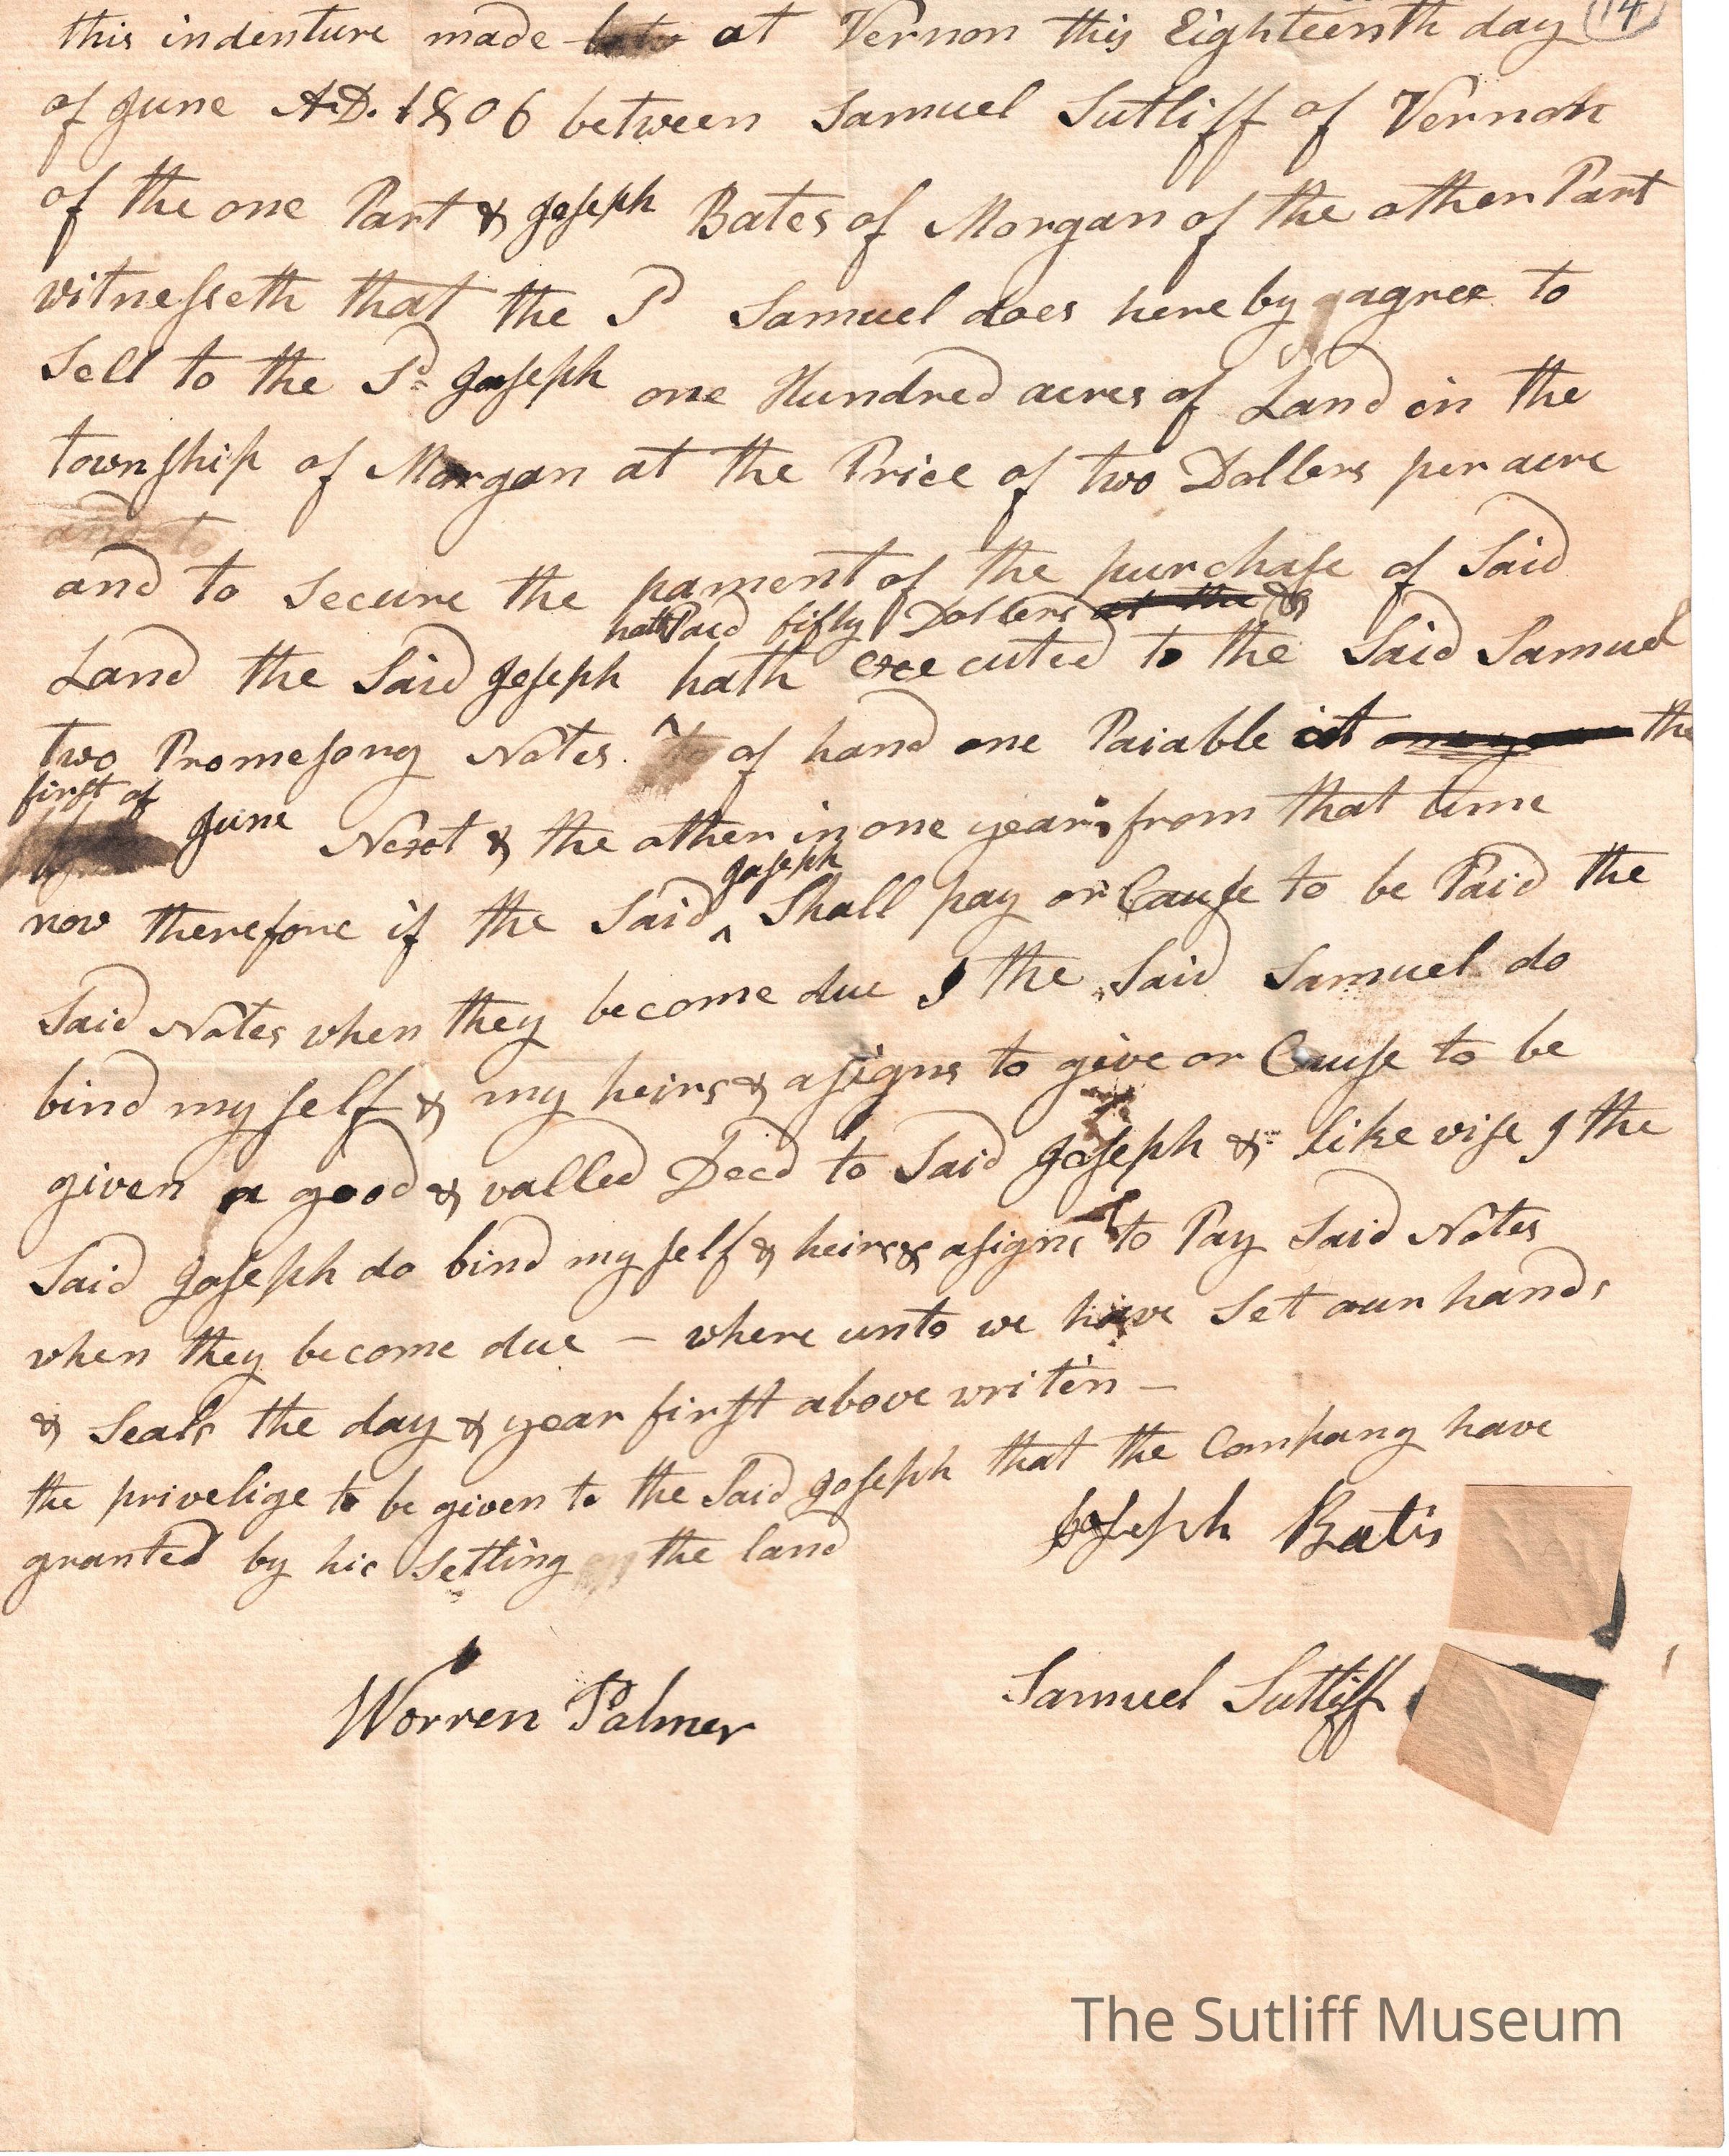 14
this indenture made at Vernon this Eighteenth day
of June A.D. 1806 between Samuel Sutliff of Vernon
of the one Part & Joseph Bates of Morgan of the other Part
witnesseth that the Sd Samuel does here by agree to
Sell to the Sd Joseph one Hundred acres of Land in the
township of Morgan at the Price of two Dollers per acre
and to
and to Secure the pament of the purchase of Said
hath Paid fifty Dollers at the &
Land the Said Joseph hath executed to the Said Samuel
two Promesory Notes of hand one Paiable at one year the
first of
June Next & the other in one year from that time
Joseph
now therefore if the Said ^ Shall pay or Cause to be Paid the
Said Notes when they become due I the Said Samuel do
bind my self & my heirs & asigns to give or Cause to be
given a good & valled Deed to Said Joseph & like wise I the
Said Joseph do bind my self & heirs & asigns to Pay Said Notes
when they become due — where unto we have Set our hands
& Seals the day & year first above writen —
the privelige to be given to the Said Joseph that the Company have
granted by his Setling the land
Joseph Batis
Samuel Sutliff
Worren Palmer
The Sutliff Museum